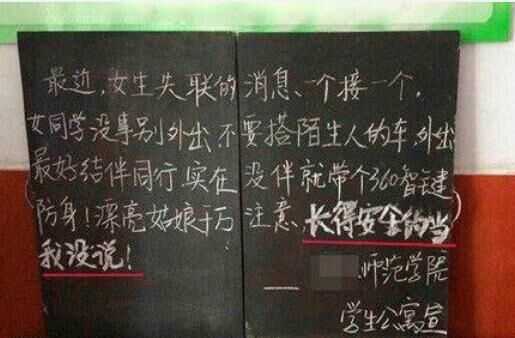 最近,女生失联的消息、一个接一个,
女同学没事别外出,不要搭陌生人的车,外出
最好结伴同行,实在没伴就带个360智键
防身!漂亮姑娘千万注意,长得安全的当
我没说!
师范学院
学生公寓宣